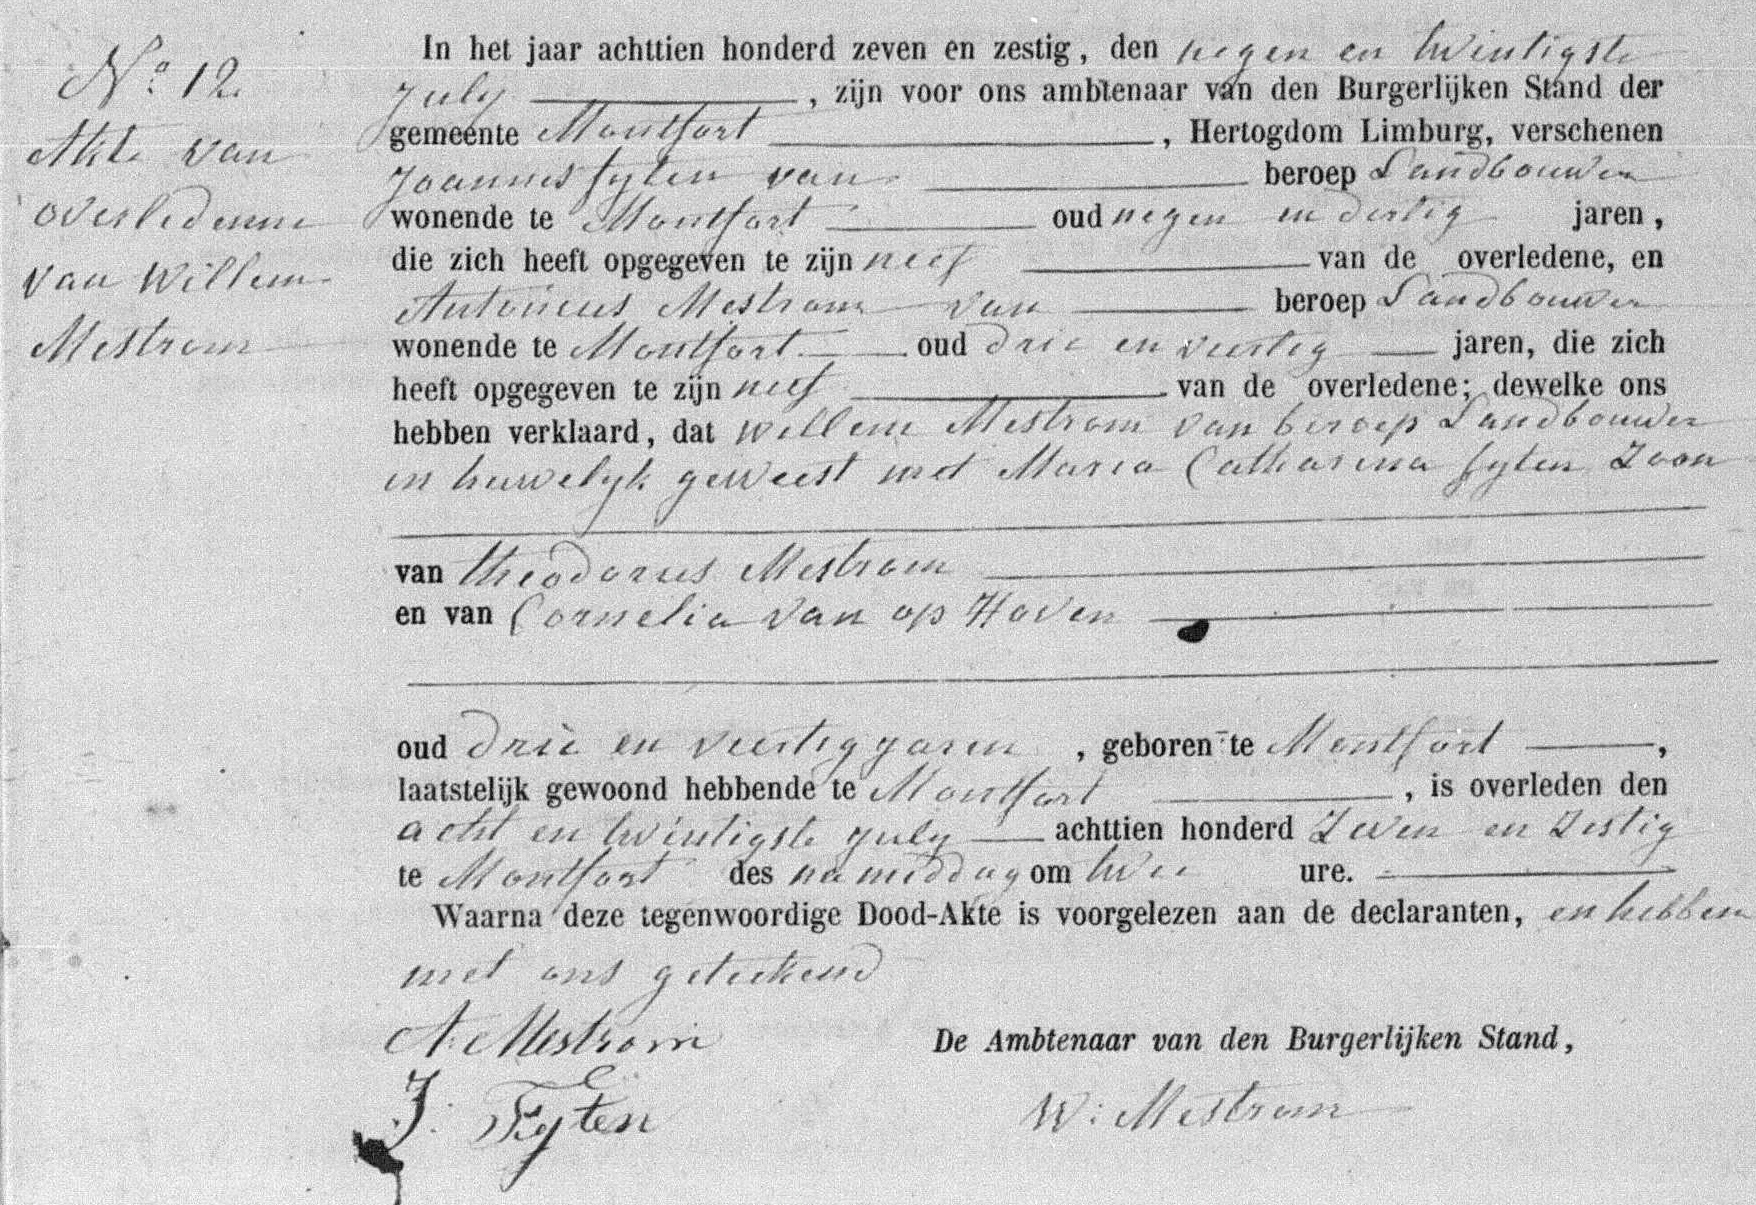 No. 12.
Akte van
overledenne
van Willem
Mestrom
In het jaar achttien honderd zeven en zestig, den negen en twintigste
July, zijn voor ons ambtenaar van den Burgerlijken Stand der
gemeente Montfort, Hertogdom Limburg, verschenen
Joannes fyten van beroep Landbouwer
wonende te Montfort oud negen en dertig jaren,
die zich heeft opgegeven te zijn neef van de overledene, en
Antonius Mestrom van beroep Landbouwer
wonende te Montfort oud drie en veertig jaren, die zich
heeft opgegeven te zijn neef van de overledene; dewelke ons
hebben verklaard, dat willem Mestrom van beroep Landbouwer
in huwelyk geweest met Maria Catharina fyten Zoon
van theodorus Mestrom
en van Cornelia van op Hoven
oud drie en veertig jaren, geboren te Montfort,
laatstelijk gewoond hebbende te Montfort, is overleden den
acht en twintigste july achttien honderd Zeven en Zestig
te Montfort des namiddag om twee ure.
Waarna deze tegenwoordige Dood-Akte is voorgelezen aan de declaranten, en hebben
met ons geteekend
A. Mestrom
De Ambtenaar van den Burgerlijken Stand,
J. Fyten
W: Mestrom